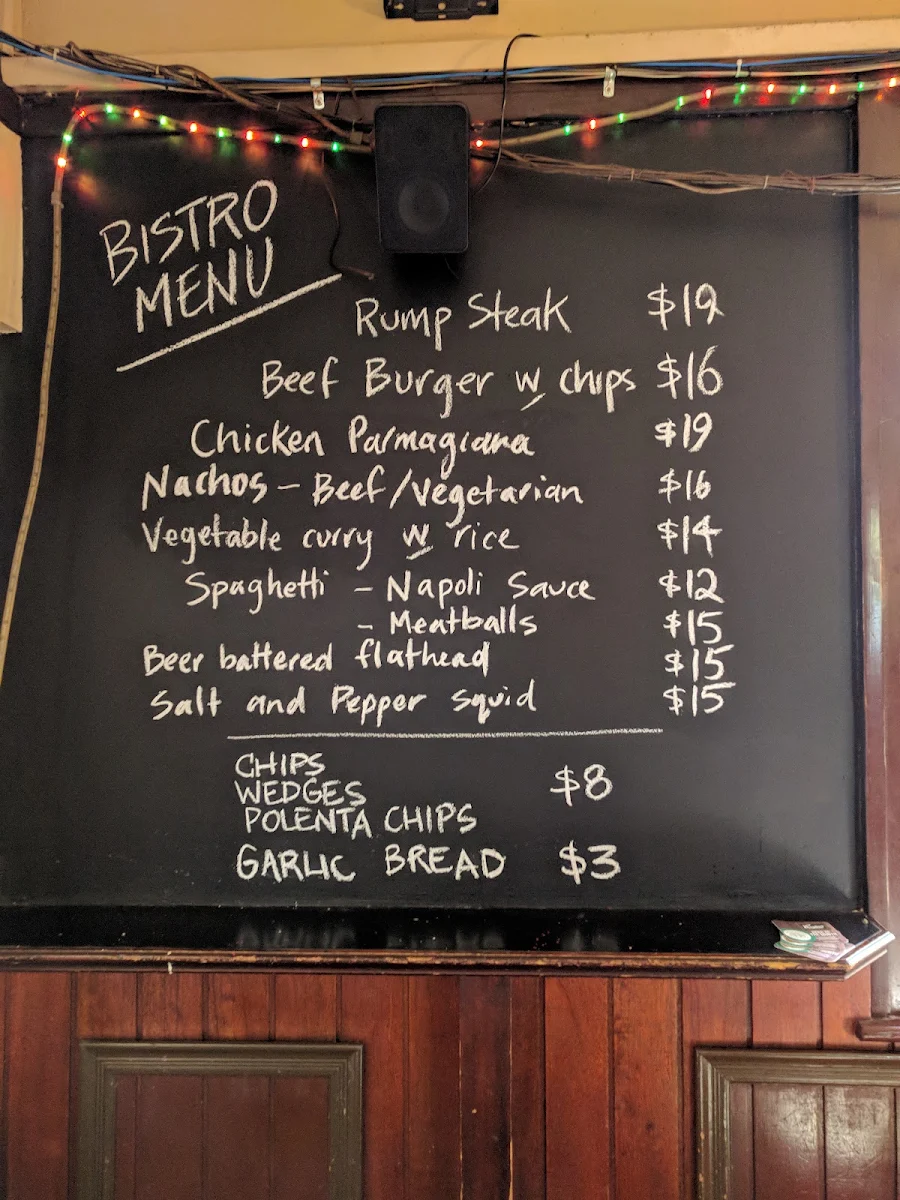 BISTRO
MENU
Rump Steak $19
Beef Burger w chips $16
Chicken Parmagiana $19
Nachos - Beef/Vegetarian $16
Vegetable curry w rice $14
Spaghetti - Napoli Sauce $12
- Meatballs $15
Beer battered flathead $15
Salt and Pepper squid $15
CHIPS
WEDGES $8
POLENTA CHIPS
GARLIC BREAD $3